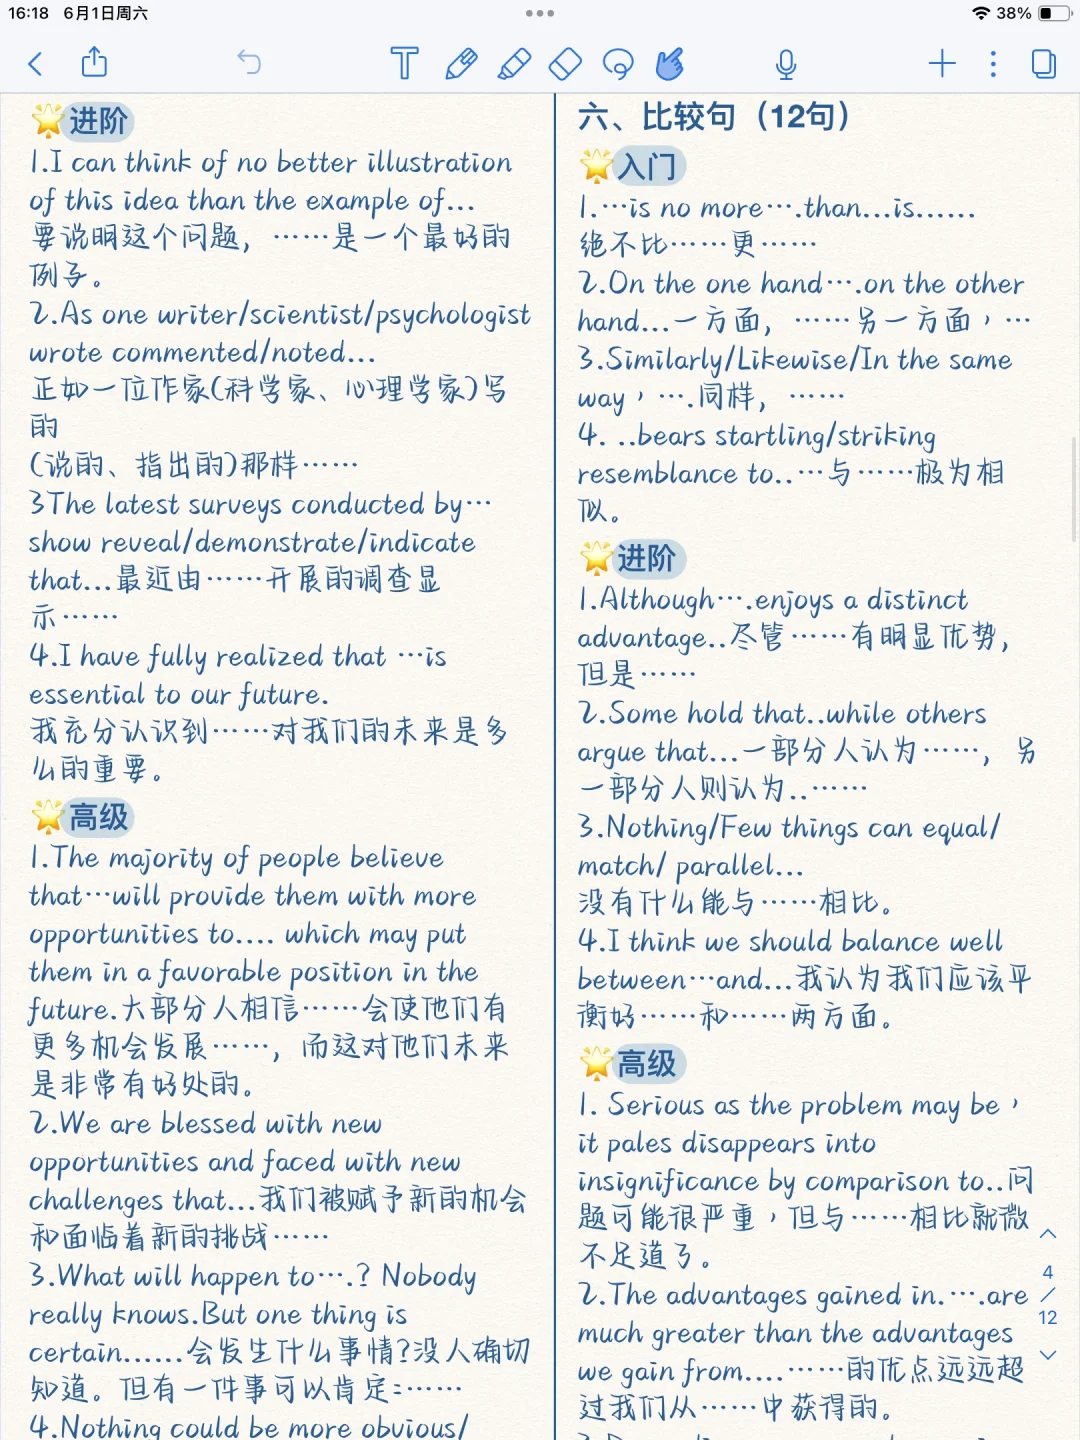 16:18 6月1日周六
38%
进阶
1.I can think of no better illustration
of this idea than the example of...
要说明这个问题，……是一个最好的
例子。
2.As one writer/scientist/psychologist
wrote commented/noted...
正如一位作家(科学家、心理学家)写
的
(说的、指出的)那样……
3The latest surveys conducted by…
show reveal/demonstrate/indicate
that...最近由……开展的调查显
示……
4.I have fully realized that …is
essential to our future.
我充分认识到……对我们的未来是多
么的重要。
高级
1.The majority of people believe
that…will provide them with more
opportunities to.... which may put
them in a favorable position in the
future.大部分人相信……会使他们有
更多机会发展……，而这对他们未来
是非常有好处的。
2.We are blessed with new
opportunities and faced with new
challenges that...我们被赋予新的机会
和面临着新的挑战……
3.What will happen to….? Nobody
really knows.But one thing is
certain......会发生什么事情?没人确切
知道。但有一件事可以肯定:……
4.Nothing could be more obvious/
六、比较句（12句）
入门
1.…is no more….than...is......
绝不比……更……
2.On the one hand….on the other
hand...一方面，……另一方面，…
3.Similarly/Likewise/In the same
way，….同样，……
4. ..bears startling/striking
resemblance to..…与……极为相
似。
进阶
1.Although….enjoys a distinct
advantage..尽管……有明显优势，
但是……
2.Some hold that..while others
argue that...一部分人认为……，另
一部分人则认为..……
3.Nothing/Few things can equal/
match/ parallel...
没有什么能与……相比。
4.I think we should balance well
between…and...我认为我们应该平
衡好……和……两方面。
高级
1. Serious as the problem may be，
it pales disappears into
insignificance by comparison to..问
题可能很严重，但与……相比就微
不足道了。
2.The advantages gained in.….are
much greater than the advantages
we gain from....……的优点远远超
过我们从……中获得的。
4
/
12